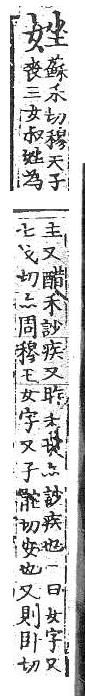 㛗
蘇禾切穆天子
喪三女叔㛗為
主又醋禾訬疾又昨禾切訬疾也一曰女字又
七戈切周穆王女字又子切安也又則卧切